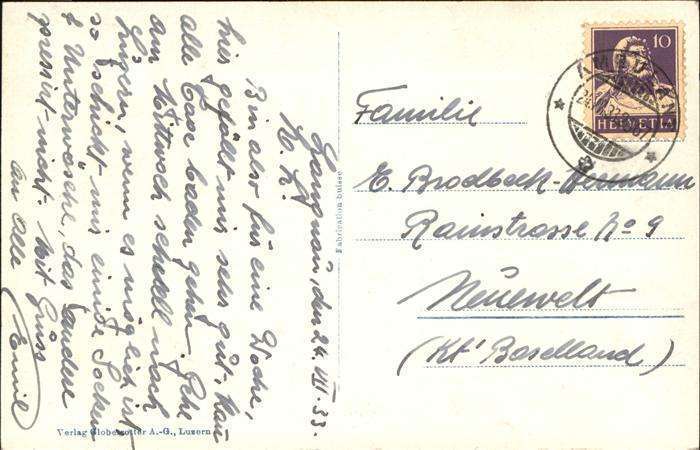 Langnau, den 24. VIII. 33.
M. L!
Bin also für eine Woche,
hier gefällt mir sehr gut. Kan
alle Tage baden gehen. Gehe
am Mittwoch schnell nach
Lugern, wenn es möglich ist
so schickt mir einige Socken
& Unterwäsche, das andere
pressirt nicht. Mit Gruss
an Alle Emil
Verlag Globetrotter A.-G., Luzern
Fabrication Suisse
10
HELVETIA
Familie
E. Brodbeck-Hermann
Rainstrasse No 9
Neuewelt
(Kt' Baselland)